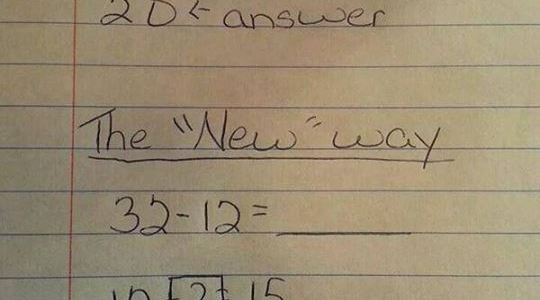 20 ← answer
The "New" way
32-12=____
12+3=15